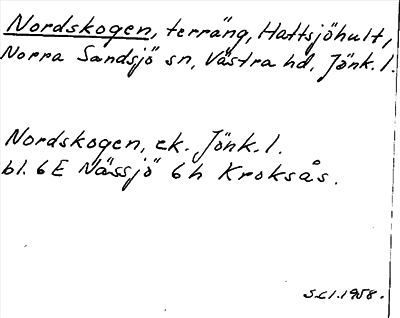 Nordskogen, terräng, Hattsjöhult,
Norra Sandsjö sn, Västra hd, Jönk.l.
Nordskogen, ek. Jönk.l.
bl. 6E Nässjö 6h Kroksås.
1958.